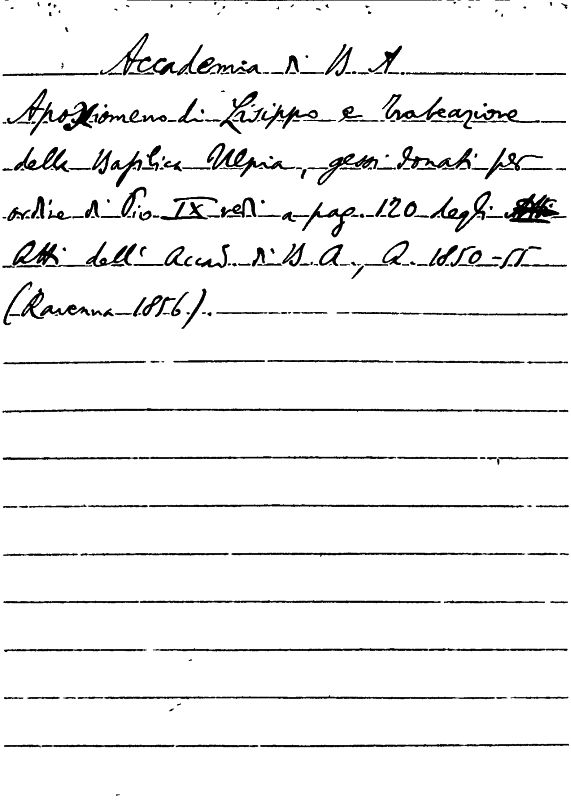 Accademia di B A
Apoxiomeno di Lisippo e Trabeazione
della Basilica Ulpia, gessi donati per
ordine di Pio IX vedi a pag. 120 degli
Atti dell' Accad. di B. A., A. 1850-55
(Ravenna 1856).